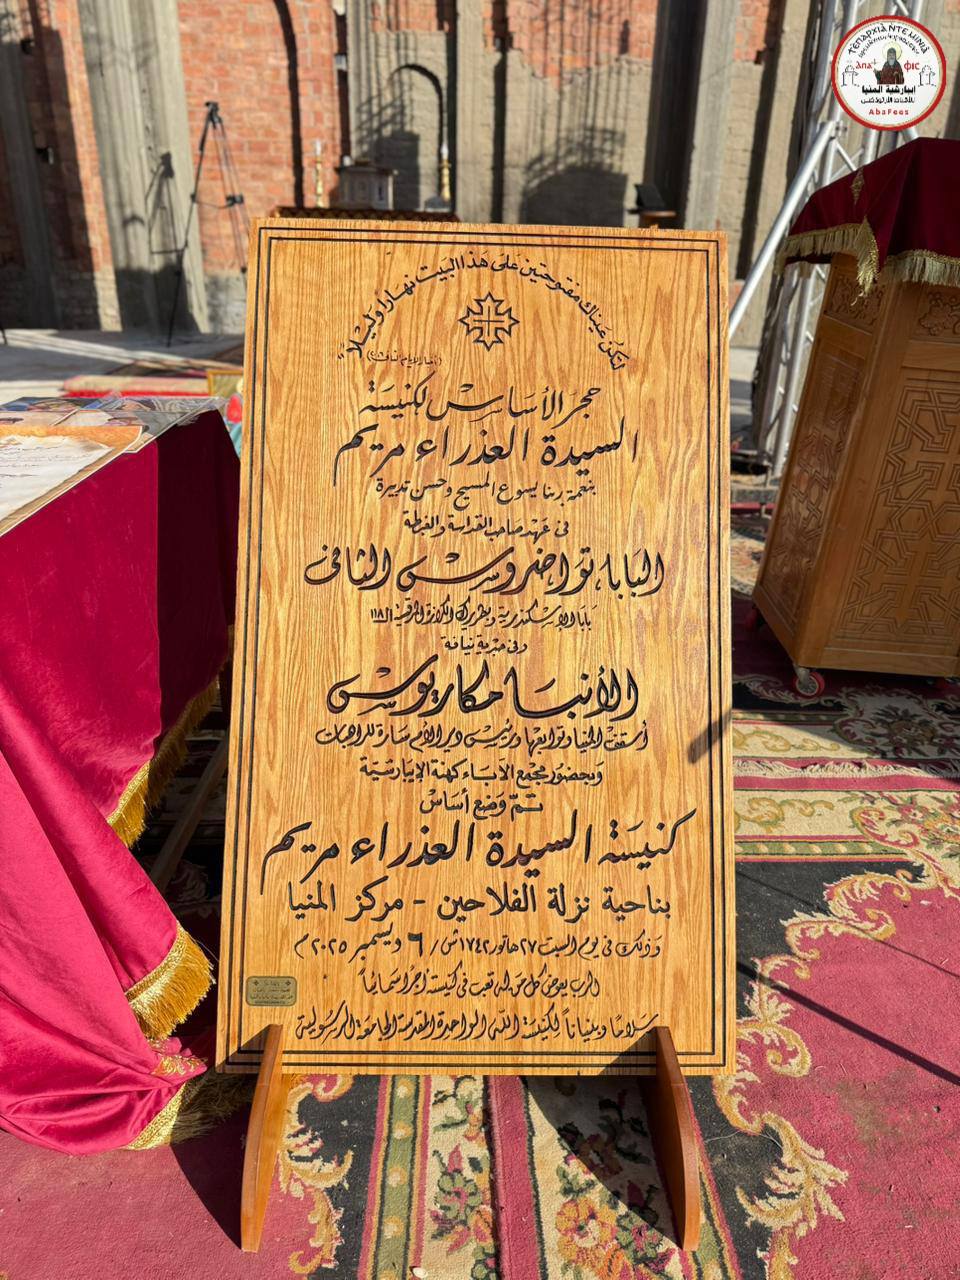 لتكن عيناك مفتوحتين على هذا البيت نهارا وليلا"
حجر الأساس لكنيسة
السيدة العذراء مريم
بنعمة ربنا يسوع المسيح وحسن تدبيره
فى عهد صاحب القداسة والغبطة
البابا تواضروس الثانى
بابا الإسكندرية وبطريرك الكرازة المرقسية الـ ١١٨
وفى حبرية نيافة
الأنبا مكاريوس
أسقف المنيا وتوابعها ورئيس دير الأم سارة للراهبات
وبحضور مجمع الآباء كهنة الإيبارشية
تم وضع أساس
كنيسة السيدة العذراء مريم
بناحية نزلة الفلاحين - مركز المنيا
وذلك فى يوم السبت ٢٧ هاتور ١٧٤٢ش / ٦ ديسمبر ٢٠٢٥ م
الرب يعوض كل من له تعب فى كنيسته أجرا سمائيا
سلاما وبنيانا لكنيسة الله الواحدة المقدسة الجامعة الرسولية
ϯⲉⲡⲁⲣⲭⲓⲁ ⲛⲧⲉ ⲙⲓⲛⲓⲁ
ⲁⲡⲁ ⲫⲓⲥ
إيبارشية المنيا
للأقباط الأرثوذكس
AbaFees